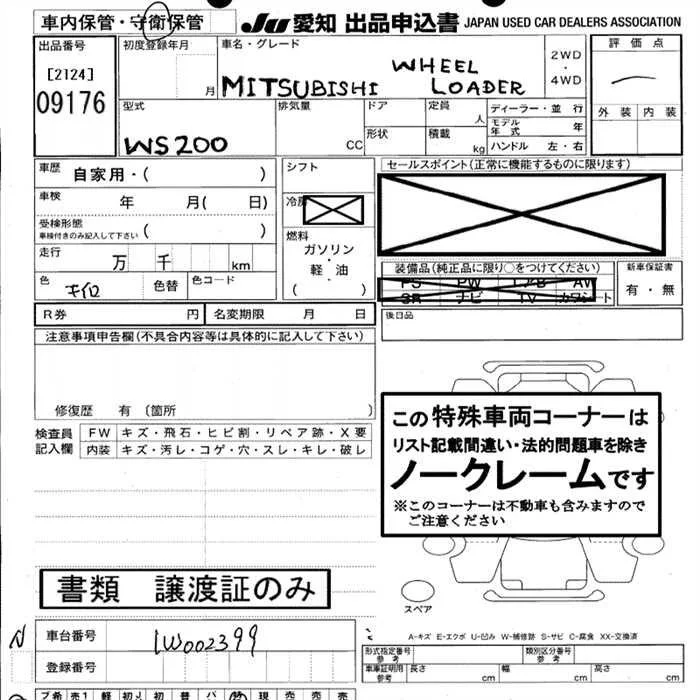 車内保管・守衛保管
JU 愛知 出品申込書 JAPAN USED CAR DEALERS ASSOCIATION
出品番号
[2124]
09176
初度登録年月
月
車名・グレード
MITSUBISHI WHEEL LOADER
2WD
・
4WD
評価点
外装 内装
型式
WS200
排気量
CC
ドア
形状
定員
人
積載
kg
ディーラー・並 行
モデル年式 年
ハンドル 左・右
車歴 自家用・( )
車検 年 月( 日)
受検形態
車検付きのみ記入して下さい ( )
走行 万 千 km
色 キイロ 色替 色コード
シフト
冷房
燃料
ガソリン
・
軽・油
( )
セールスポイント(正常に機能するものに限ります)
装備品(純正品に限り○をつけてください)
PS PW エアB AW
SR ナビ TV カワシート
新車保証書
有・無
R券 円 名変期限 月 日
後日品
注意事項申告欄(不具合内容等は具体的に記入して下さい)
修復歴 有 〔箇所 〕
検査員
記入欄
FW キズ・飛石・ヒビ割・リペア跡・X要
内装 キズ・汚レ・コゲ・穴・スレ・キレ・破レ
この特殊車両コーナーは
リスト記載間違い・法的問題車を除き
ノークレームです
※このコーナーは不動車も含みますので
ご注意ください
書類 譲渡証のみ
スペア
A-キズ E-エクボ U-凹み W-補修跡 S-サビ C-腐食 XX-交換済
N
車台番号 1W002399
登録番号
型式指定番号
参考
類別区分番号
参考
車車証明用
参考
長さ cm 幅 cm 高さ cm